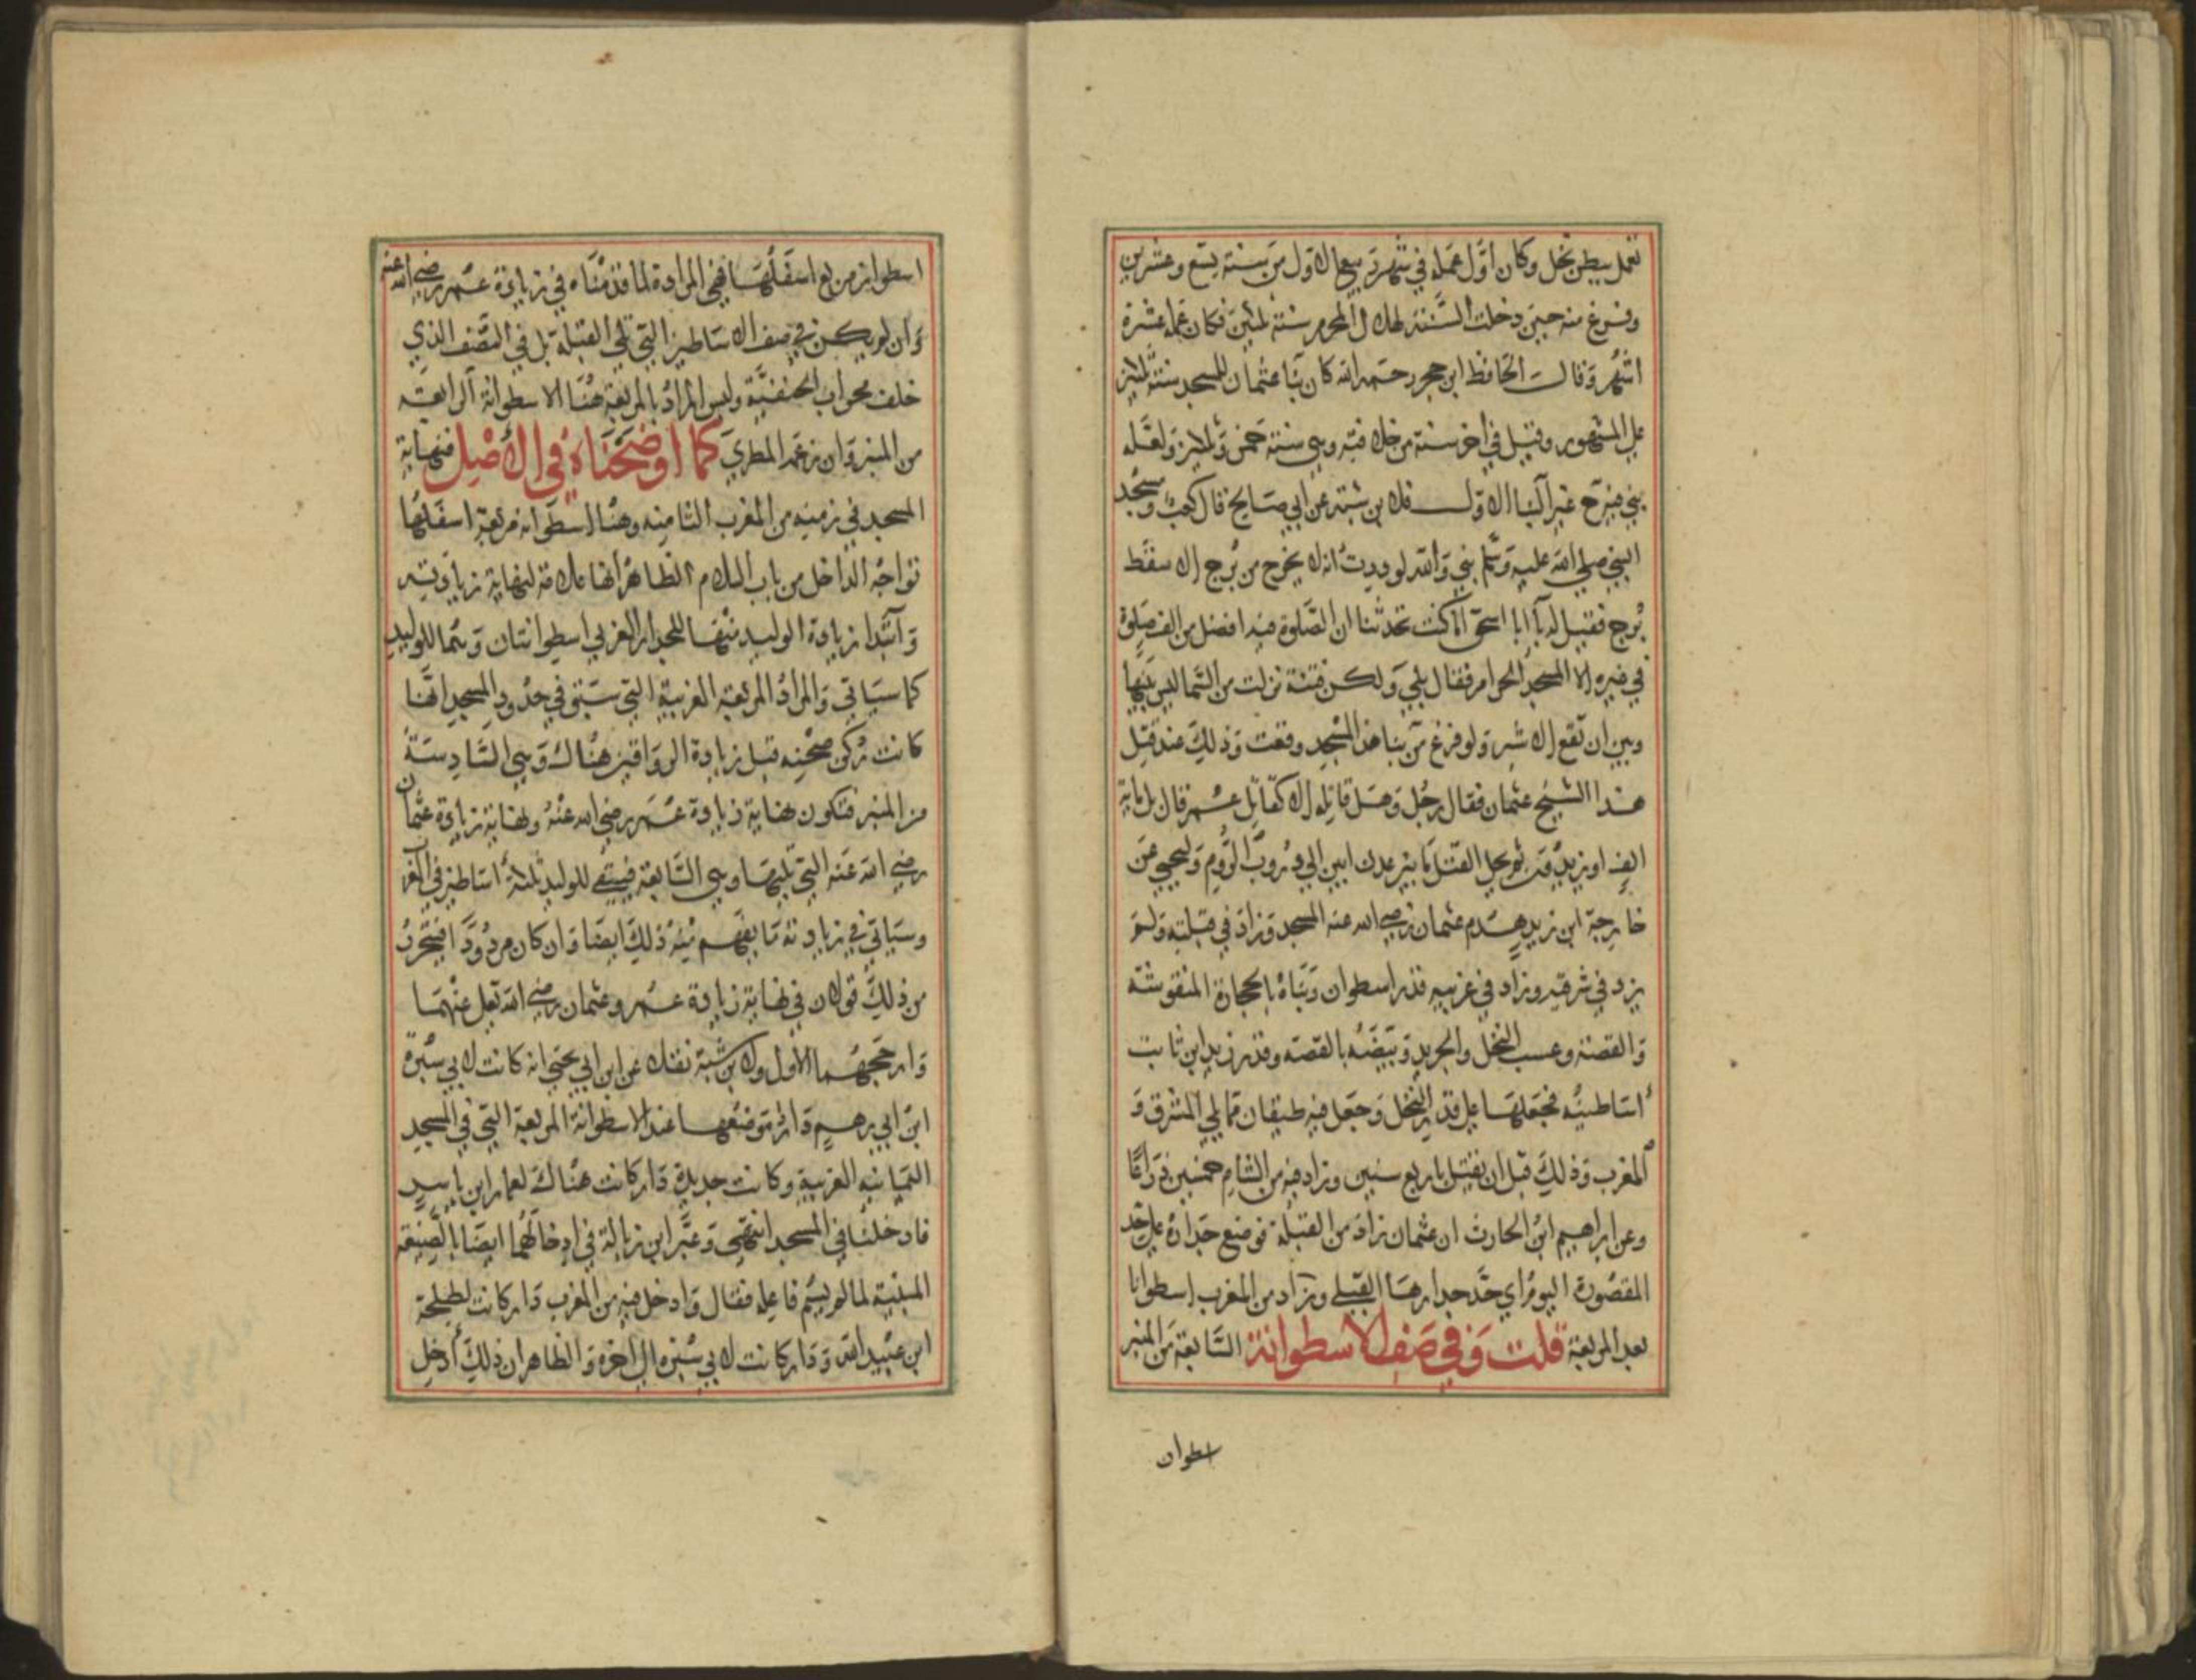 تعمل ببطن نخل وكان اوّل عمله في شهر ربيع الاول من سنة تسع وعشرين
وفرغ منه حين دخلت السّنة لهلال المحرم سنة ثلثين فكان عمله عشرة
اشهر وقال الحافظ ابن حجر رحمه الله كان بنا عثمان للمسجد سنة ثلثين
على المشهور وقيل في اخر سنة من خلافته وهي سنة خمس وثلثين ولعله
بنى مرتين غير البنا الاول فلابن شبة عن ابي صالح قال كعب ومسجد
النبي صلى الله عليه وسلم يبنى والله لوددت انه لا يخرج من برج الا سقط
برج فقيل له يا ابا اسحق اما كنت تحدثنا ان الصّلوة فيه افضل من الف صلوة
في غيره الا المسجد الحرام فقال بلى ولكن فتنة نزلت من السّما ليس بينها
وبين ان تقع الا شبر ولو فرغ من بنا هذا المسجد وقعت وذلك عند قتل
هذا الشيخ عثمان فقال رجل وهل قاتله الا كقاتل عمر قال بل ماية
الف او يزيدون ثم يحل القتل ما بين عدن ابين الى دروب الروم وليحيى عن
خارجة ابن زيد هدم عثمان رضي الله عنه المسجد وزاد في قبلته ولم
يزد في شرقيه وزاد في غربيه قدر اسطوان وبناه بالحجارة المنقوشة
والقصة وعسب النخل والجريد وبيّضه بالقصة وقدر زيد ابن ثابت
اساطينه فجعلها على قدر النخل وجعل فيه طيقان مما يلي المشرق و
المغرب وذلك قبل ان يقتل باربع سنين وزاد فيه من الشام خمسين ذراعا
وعن ابراهيم ابن الحارث ان عثمان زاد من القبلة فوضع جداره على حد
المقصورة اليوم اي حد جدارها القبلي وزاد من المغرب اسطوانا
بعد المربعة قلت وفي صف الاسطوانة السّابعة من المنبر
اسطوان
اسطوان مربع اسفلها فهي المرادة لما قدمناه في زيادة عمر رضي الله عنه
وان لم يكن في صف الاساطين التي تلي القبلة بل في الصّف الذي
خلف محراب الحنفية وليس المراد بالمربعة هنا الاسطوانة الرابعة
من المنبر وان زعمه المطري كما اوضحناه في الاصل فنهاية
المسجد في زمنه من المغرب الثامنة وهنا اسطوانة مربعة اسفلها
تواجه الداخل من باب السلام الظاهر انها علامة لنهاية زيادته
وابتدا زيادة الوليد منها للجدار الغربي اسطوانتان وهما للوليد
كما سياتي والمراد المربعة الغربية التي سبق في حدود المسجد انها
كانت ركن صحنه قبل زيادة الرواقين هناك وهي السّادسة
من المنبر فتكون نهاية زيادة عمر رضي الله عنه ونهاية زيادة عثمان
رضي الله عنه التي تليها وهي السّابعة فيبقى للوليد ثلثة اساطين في الغر
وسياتي في زيادته ما يفهم منه ذلك ايضا وان كان مردودا فيتحرر
من ذلك قولان في نهاية زيادة عمر وعثمان رضي الله تعالى عنهما
وارجحهما الاول ولابن شبة نقلا عن ابن ابي يحيى انه كانت لابي سبرة
ابن ابي برهم دار موضعها عند الاسطوانة المربعة التي في المسجد
اليمانية الغربية وكانت جديدة دار كانت هناك لعمار ابن ياسر
فادخلنا في المسجد انتهى وعبّر ابن زبالة في ادخالهما ايضا بالصّيغة
المبنية لما لم يسم فاعله فقال وادخل فيه من المغرب دار كانت لطلحة
ابن عبيد الله ودار كانت لابي سبرة الى اخره والظاهر ان ذلك أدخل